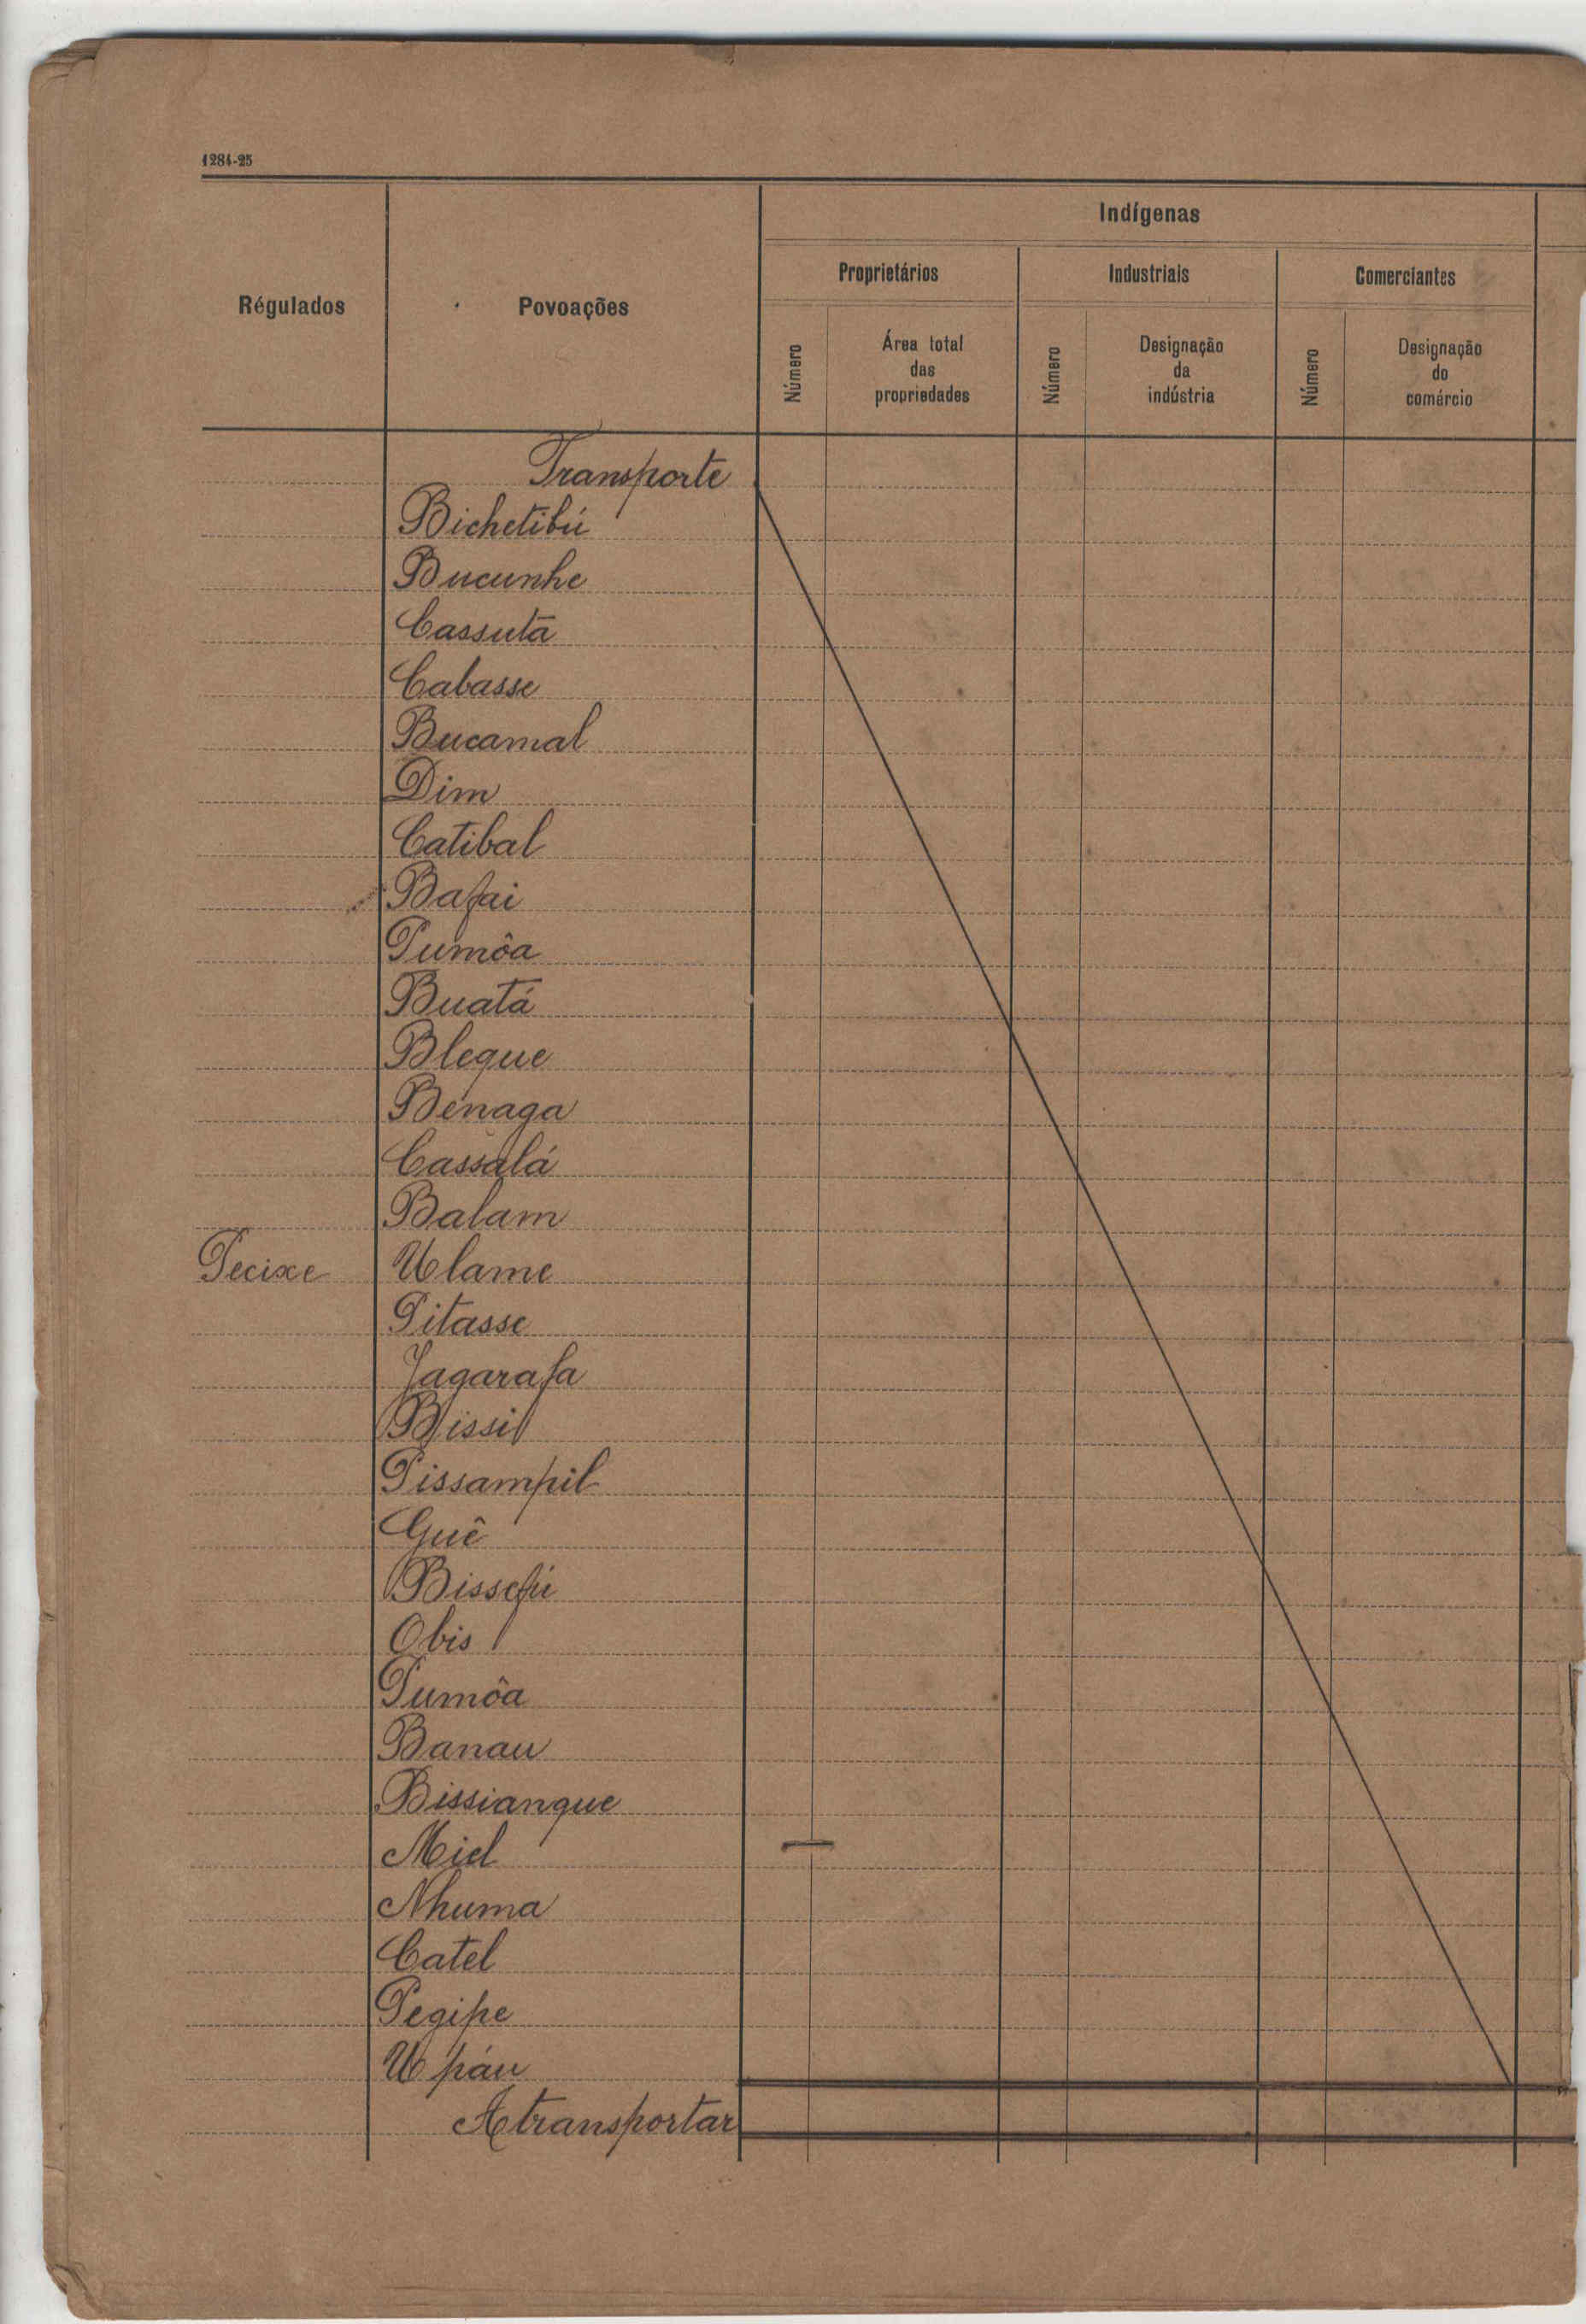 1284-25
Régulados
Povoações
Indígenas
Proprietários
Industriais
Comerciantes
Número
Área total
das
propriedades
Número
Designação
da
indústria
Número
Designação
do
comércio
Transporte
Bichetibú
Bucunhe
Cassutá
Cabasse
Bucamal
Dim
Catibal
Bafai
Pumôa
Buatá
Bleque
Benaga
Cassalá
Balam
Pecixe Ulame
Pitasse
Jagarafa
Bissil
Pissampil
Guê
Bissefú
Obis
Pumôa
Banau
Bissiangue
Miel
Nhuma
Catel
Pegipe
Upáu
A transportar